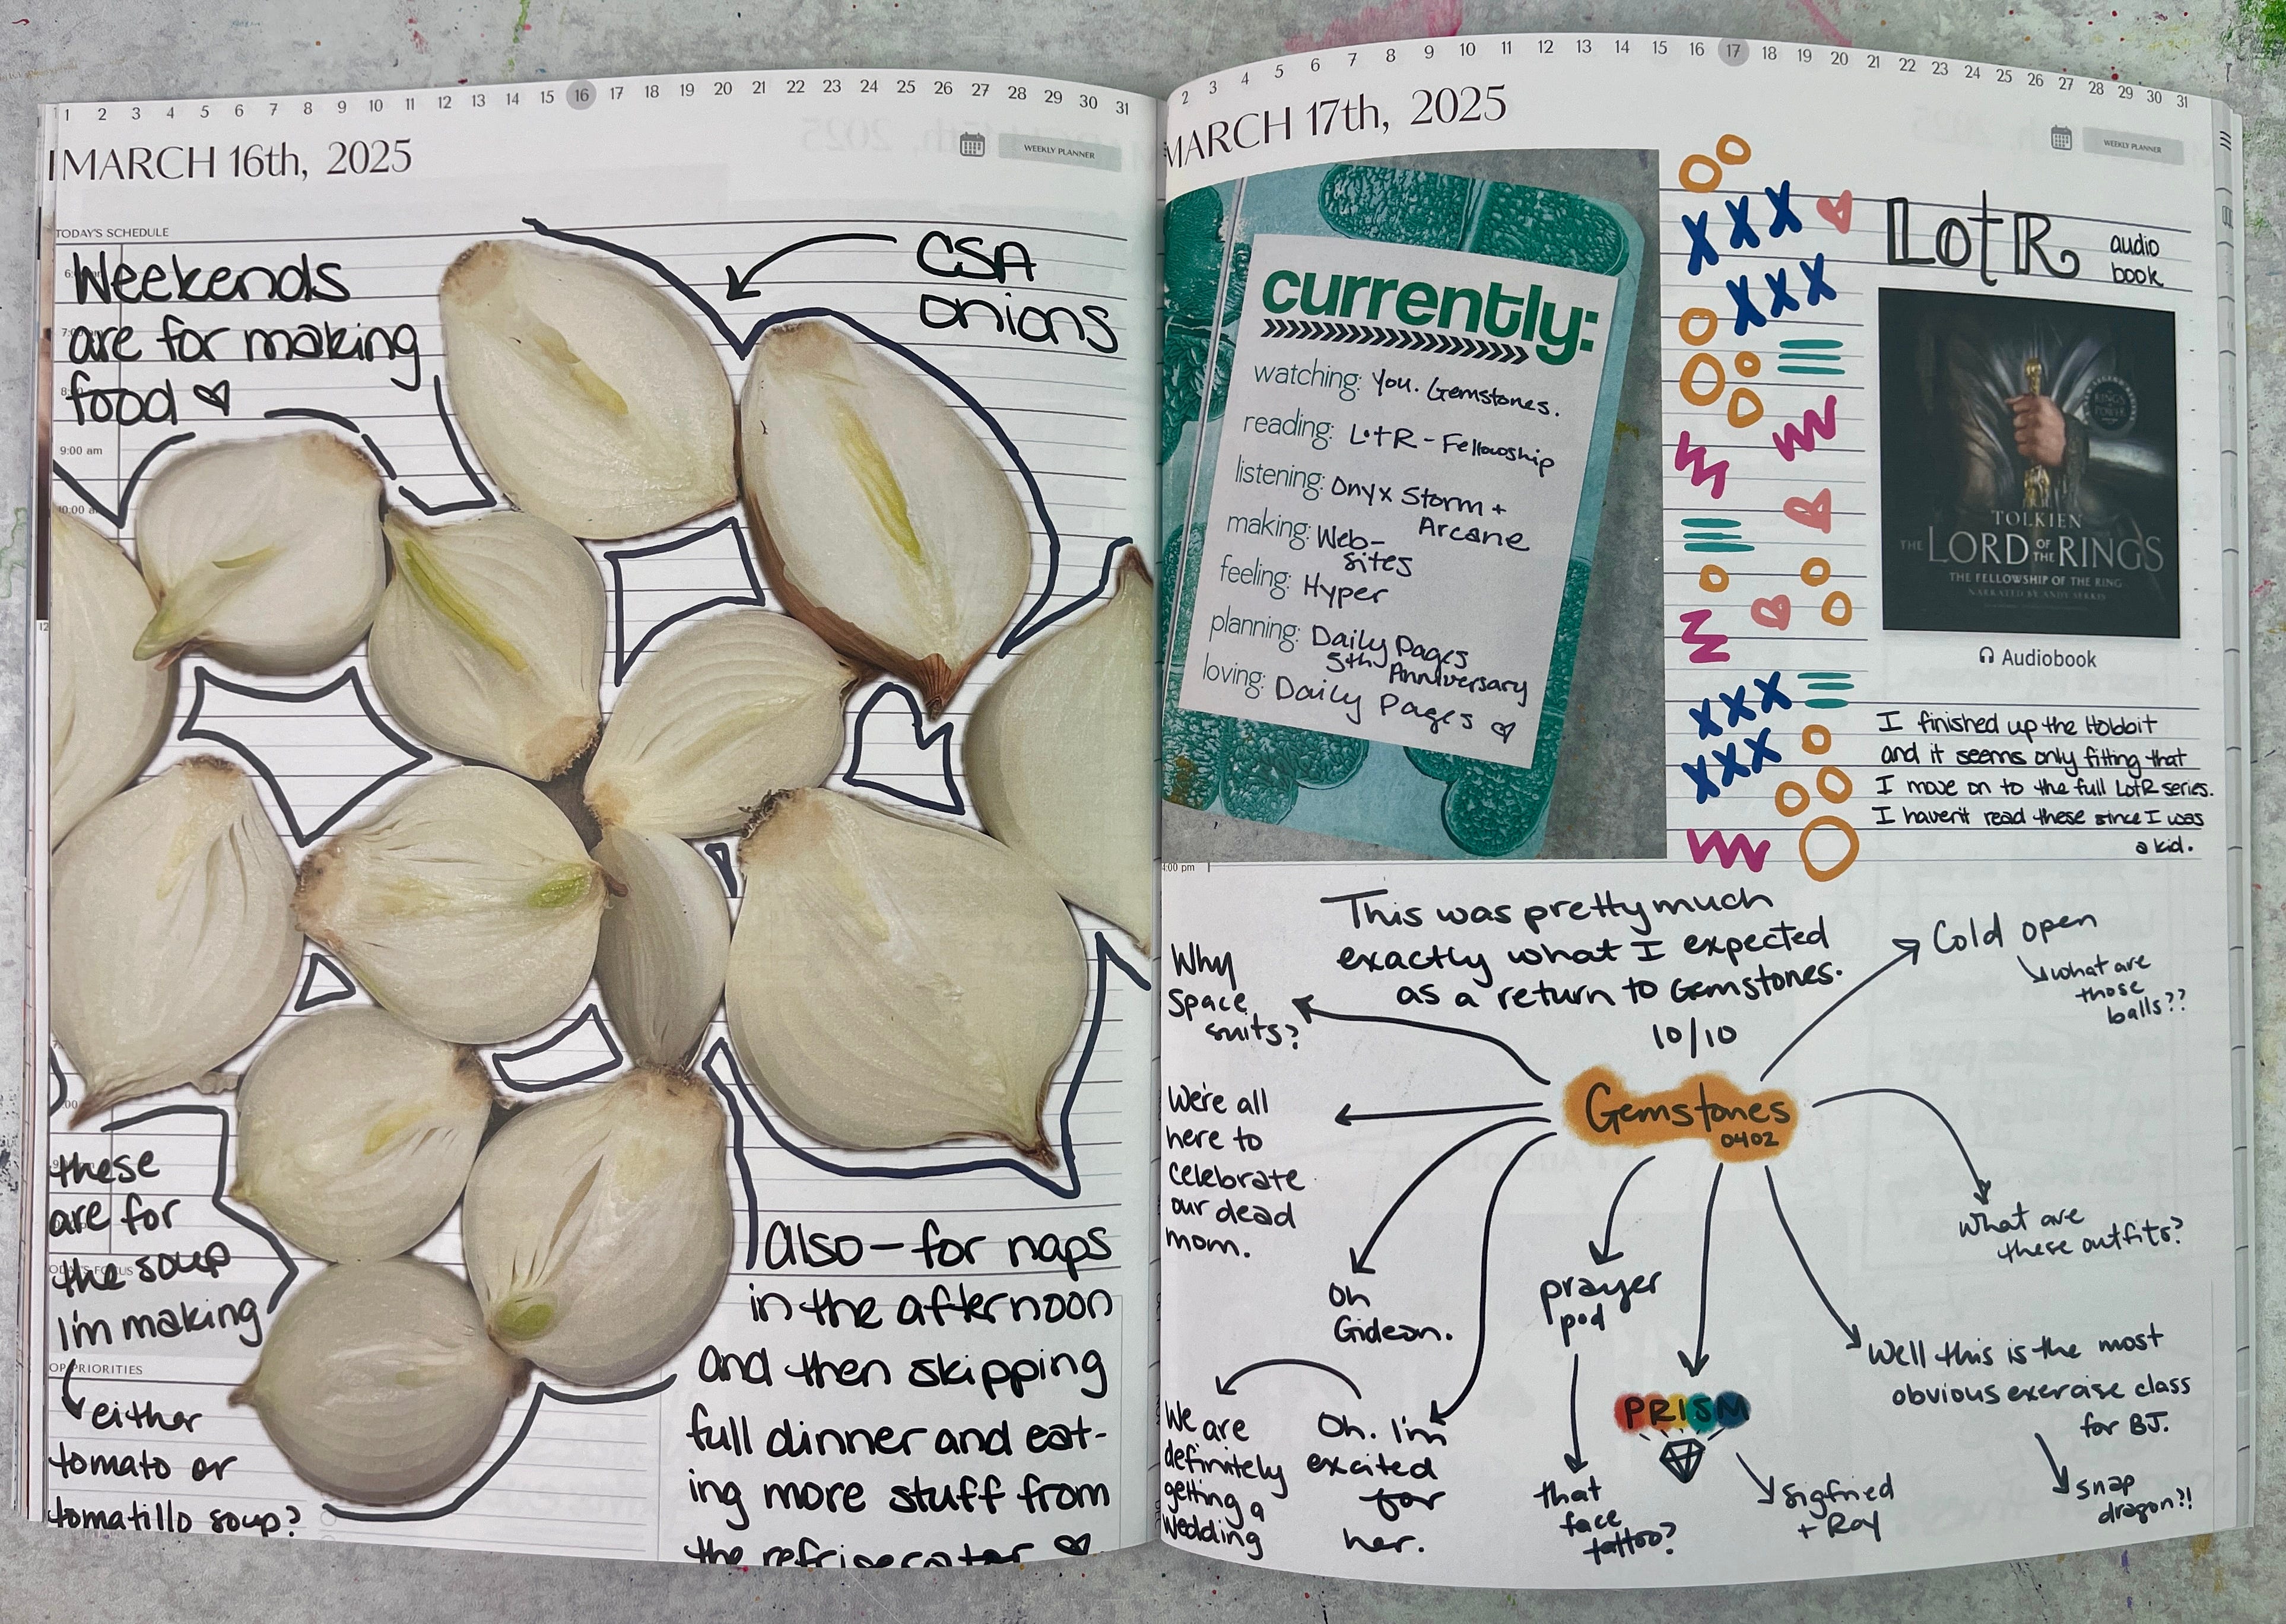 1 2 3 4 5 6 7 8 9 10 11 12 13 14 15 16 17 18 19 20 21 22 23 24 25 26 27 28 29 30 31
MARCH 16th, 2025
WEEKLY PLANNER
TODAY'S SCHEDULE
Weekends
are for making
food
CSA
onions
9:00 am
these
are for
the soup
I'm making
either
tomato or
tomatillo soup?
also – for naps
in the afternoon
and then skipping
full dinner and eat-
ing more stuff from
the refrigerator
2 3 4 5 6 7 8 9 10 11 12 13 14 15 16 17 18 19 20 21 22 23 24 25 26 27 28 29 30 31
MARCH 17th, 2025
WEEKLY PLANNER
currently:
watching: You. Gemstones.
reading: LotR - Fellowship
listening: Onyx Storm +
Arcane
making: Web-
sites
feeling: Hyper
planning: Daily Pages
5th Anniversary
loving: Daily Pages
LotR
audio
book
TOLKIEN
THE LORD OF THE RINGS
THE FELLOWSHIP OF THE RING
NARRATED BY ANDY SERKIS
Audiobook
I finished up the Hobbit
and it seems only fitting that
I move on to the full LotR series.
I haven't read these since I was
a kid.
4:00 pm
This was pretty much
exactly what I expected
as a return to Gemstones.
10/10
Gemstones
0402
Why
Space
suits?
We're all
here to
celebrate
our dead
mom.
Oh
Gideon.
Oh. I'm
excited
for
her.
We are
definitely
getting a
wedding
prayer
pod
that
face
tattoo?
PRISM
Sigfried
+ Roy
Well this is the most
obvious exercise class
for BJ.
snap
dragon?!
what are
these outfits?
Cold open
what are
those
balls??